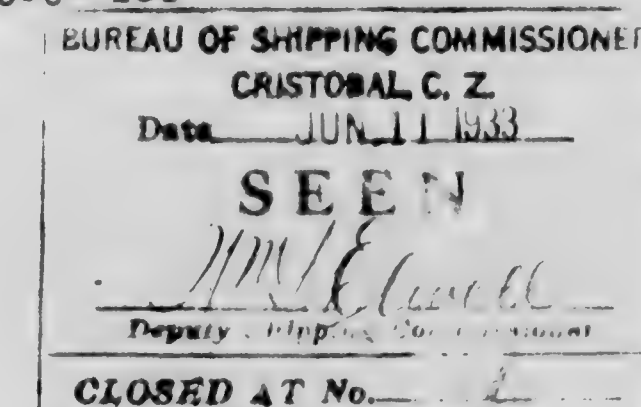 BUREAU OF SHIPPING COMMISSIONER
CRISTOBAL C. Z.
Date JUN 11 1933
SEEN
Deputy Shipping Commissioner
CLOSED AT No.